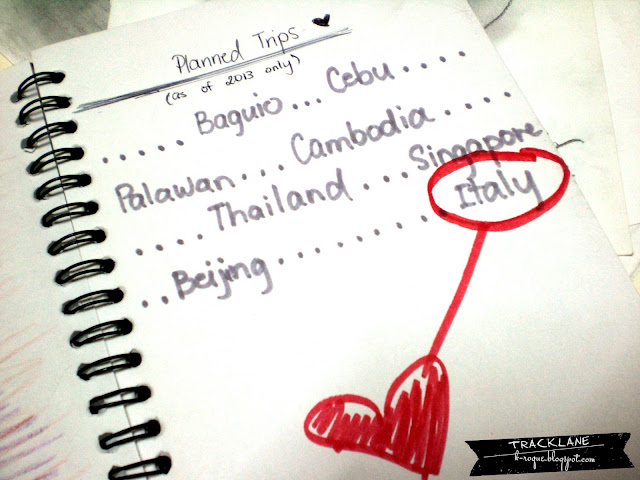 Planned Trips
(as of 2013 only)
..... Baguio ... Cebu ....
Palawan ... Cambodia ....
.... Thailand ... Singapore
.. Beijing ........ Italy
TRACKLANE
k-roque.blogspot.com